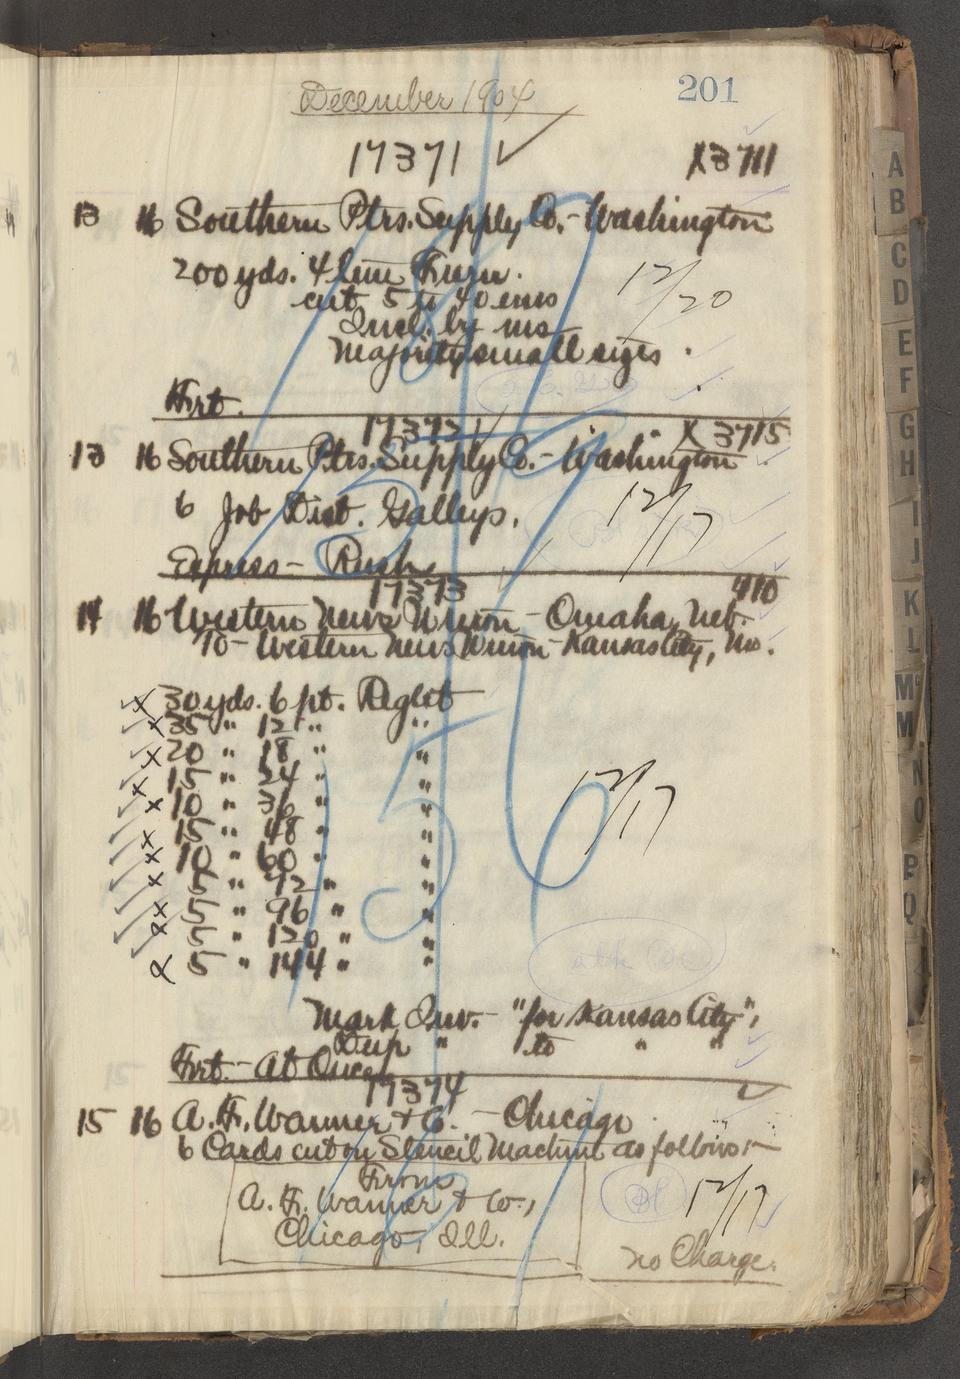 December 1904 201
17371 ✓ X3711
13 16 Southern Ptrs. Supply Co. - Washington
200 yds. 4 line Furn.
cut 5 to 40 ems
Incl. by ms
Majority small sizes.
12/20
Frt.
17372 X3715
13 16 Southern Ptrs. Supply Co. - Washington
6 Job Dist. Galleys.
12/17
Express - Rush
17373 410
14 16 Western News Union - Omaha, Neb.
To - Western News Union - Kansas City, Mo.
x 30 yds. 6 pt. Reglet
x 35 " 12 " "
x 20 " 18 " "
x 15 " 24 " "
x 10 " 36 " "
x 15 " 48 " "
x 10 " 60 " "
x 5 " 72 " "
x 5 " 96 " "
x 5 " 120 " "
x 5 " 144 " "
12/17
Mark Inv. - "for Kansas City",
Dup " to " "
Frt. - At Once
17374
15 16 A. F. Wanner & Co. - Chicago
6 Cards cut on Stencil Machine as follows:-
From
A. F. Wanner & Co.,
Chicago, Ill.
12/17
No Charge.
A
B
C
D
E
F
G
H
I
J
K
L
Mc
M
N
O
P
Q